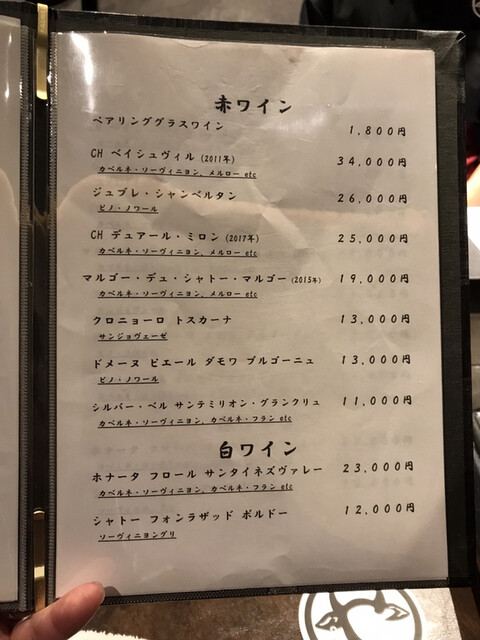 赤ワイン
ペアリンググラスワイン 1,800円
CH ベイシュヴィル (2011年) 34,000円
カベルネ・ソーヴィニヨン、メルロー etc
ジュブレ・シャンベルタン 26,000円
ピノ・ノワール
CH デュアール・ミロン (2017年) 25,000円
カベルネ・ソーヴィニヨン、メルロー etc
マルゴー・デュ・シャトー・マルゴー (2015年) 19,000円
カベルネ・ソーヴィニヨン、メルロー etc
クロニョーロ トスカーナ 13,000円
サンジョヴェーゼ
ドメーヌ ピエール ダモワ ブルゴーニュ 13,000円
ピノ・ノワール
シルバー・ベル サンテミリオン・グランクリュ 11,000円
カベルネ・ソーヴィニヨン、カベルネ・フラン etc
白ワイン
ホナータ フロール サンタイネズヴァレー 23,000円
カベルネ・ソーヴィニヨン、カベルネ・フラン etc
シャトー フォンラザッド ボルドー 12,000円
ソーヴィニヨングリ